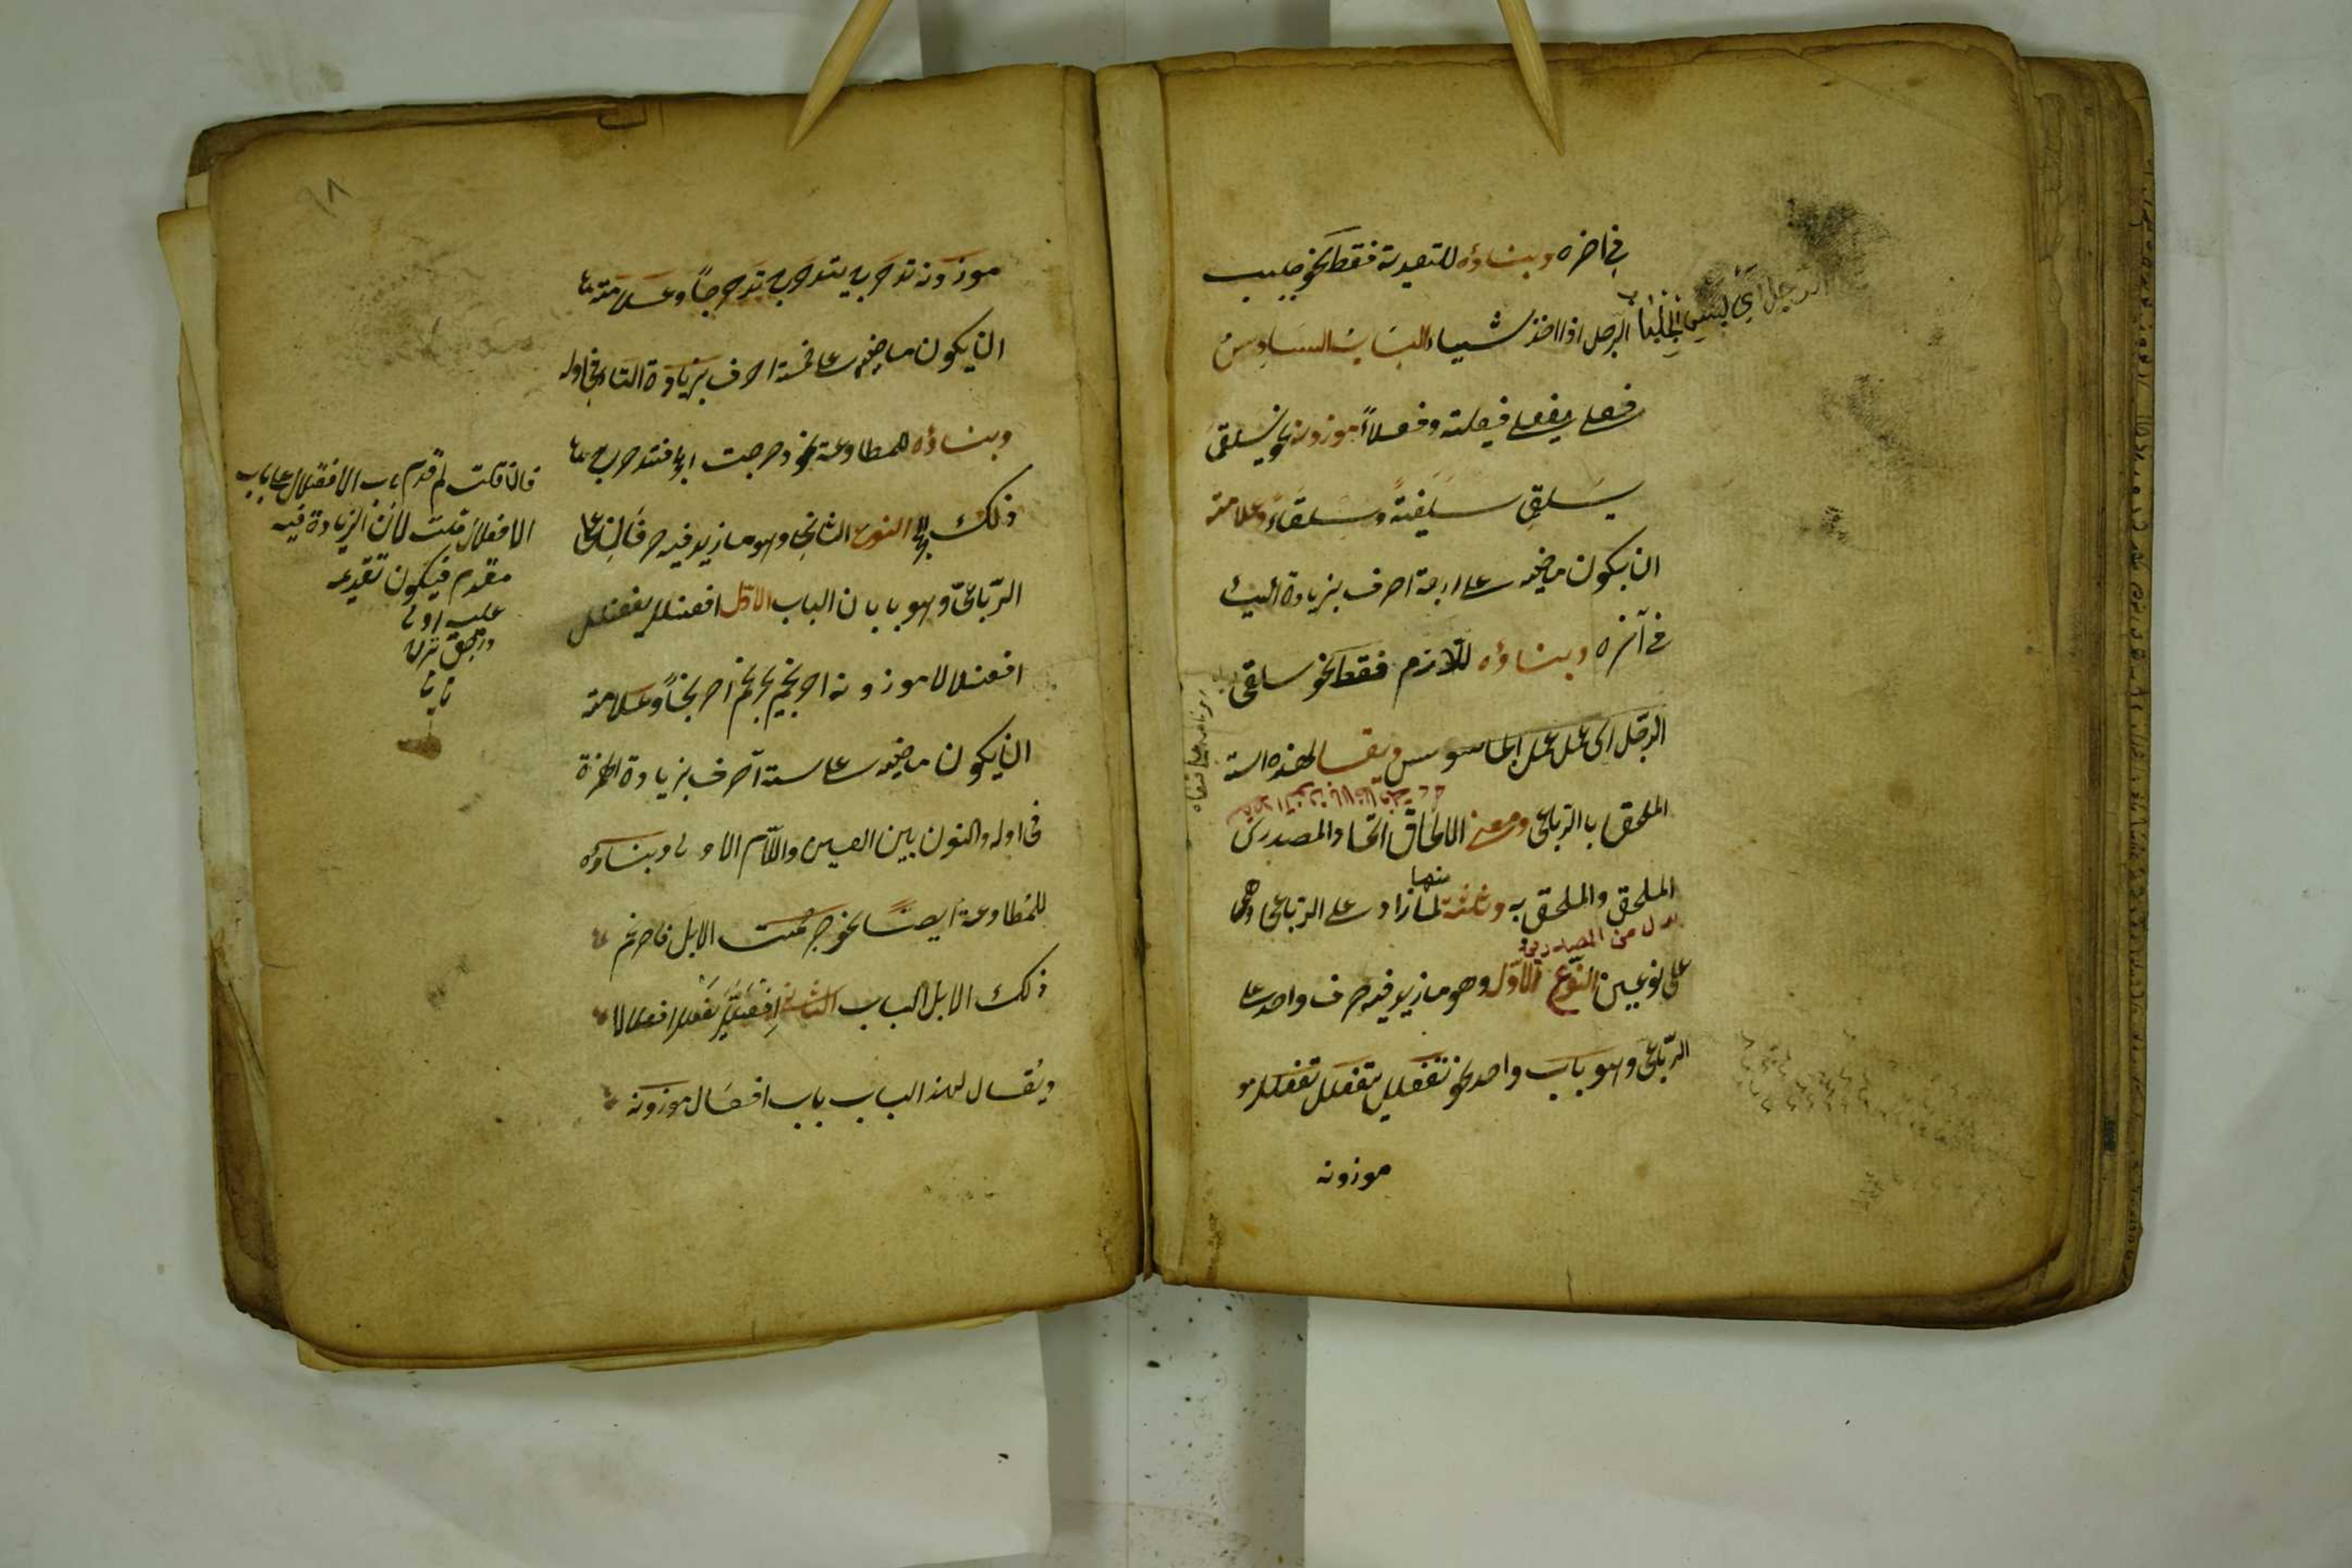 في اخره وبناؤه للتعدية فقط نحو جلبب
الرجل اذا اخذ شيئا الباب السادس
الرجل اي لبس الجلباب
فعلى يفعلى فيعلية وفعلاءً موزونه نحو سلقى
يسلقى سلقيةً وسلقاءً وعلامته
ان يكون ماضيه على اربعة احرف بزيادة الياء
في آخره وبناؤه للازم فقط نحو سلقى
الرجل اى عمل عمل الجاسوس ويقال لهذه الستة
الملحق بالرباعي ومعنى الالحاق اتحاد المصدرين
الملحق والملحق به وثلثة منها لما زاد على الرباعي وهى
بدل من المصدرين
على نوعين النوع الاول وهو ما زيد فيه حرف واحد على
الرباعي وهو باب واحد نحو تفعلل يتفعلل تفعللا مو
موزونه
٦٨
موزونه تدحرج يتدحرج تدحرجاً وعلامته
ان يكون ماضيه على خمسة احرف بزيادة التاء في اوله
وبناؤه للمطاوعة نحو دحرجت الحجر فتدحرج
ذلك الحجر النوع الثاني وهو ما زيد فيه حرفان على
الرباعي وهو بابان الباب الاول افعنلل يفعنلل
افعنلالا موزونه احرنجم يحرنجم احرنجاماً وعلامته
ان يكون ماضيه على ستة احرف بزيادة الهمزة
في اوله والنون بين العين واللام الاولى وبناؤه
للمطاوعة ايضاً نحو حرجمت الابل فاحرنجم
ذلك الابل الباب الثاني افعلل يفعلل افعلالا
ويقال لهذا الباب باب افعلال موزونه
فان قلت لم قدم باب الافعنلال على باب
الافعلال قلت لان الزيادة فيه
مقدم فيكون تقديمه
عليه اولى